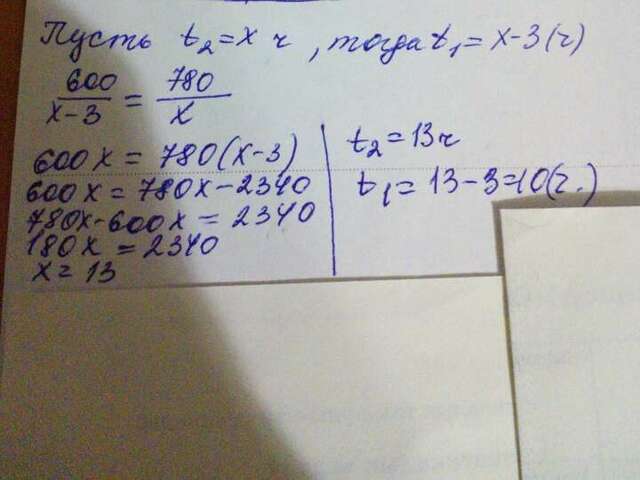 Пусть t₂ = x ч, тогда t₁ = x-3(ч)
600/x-3 = 780/x
600x = 780(x-3)
600x = 780x-2340
780x-600x = 2340
180x = 2340
x = 13
t₂ = 13ч
t₁ = 13-3=10(ч.)